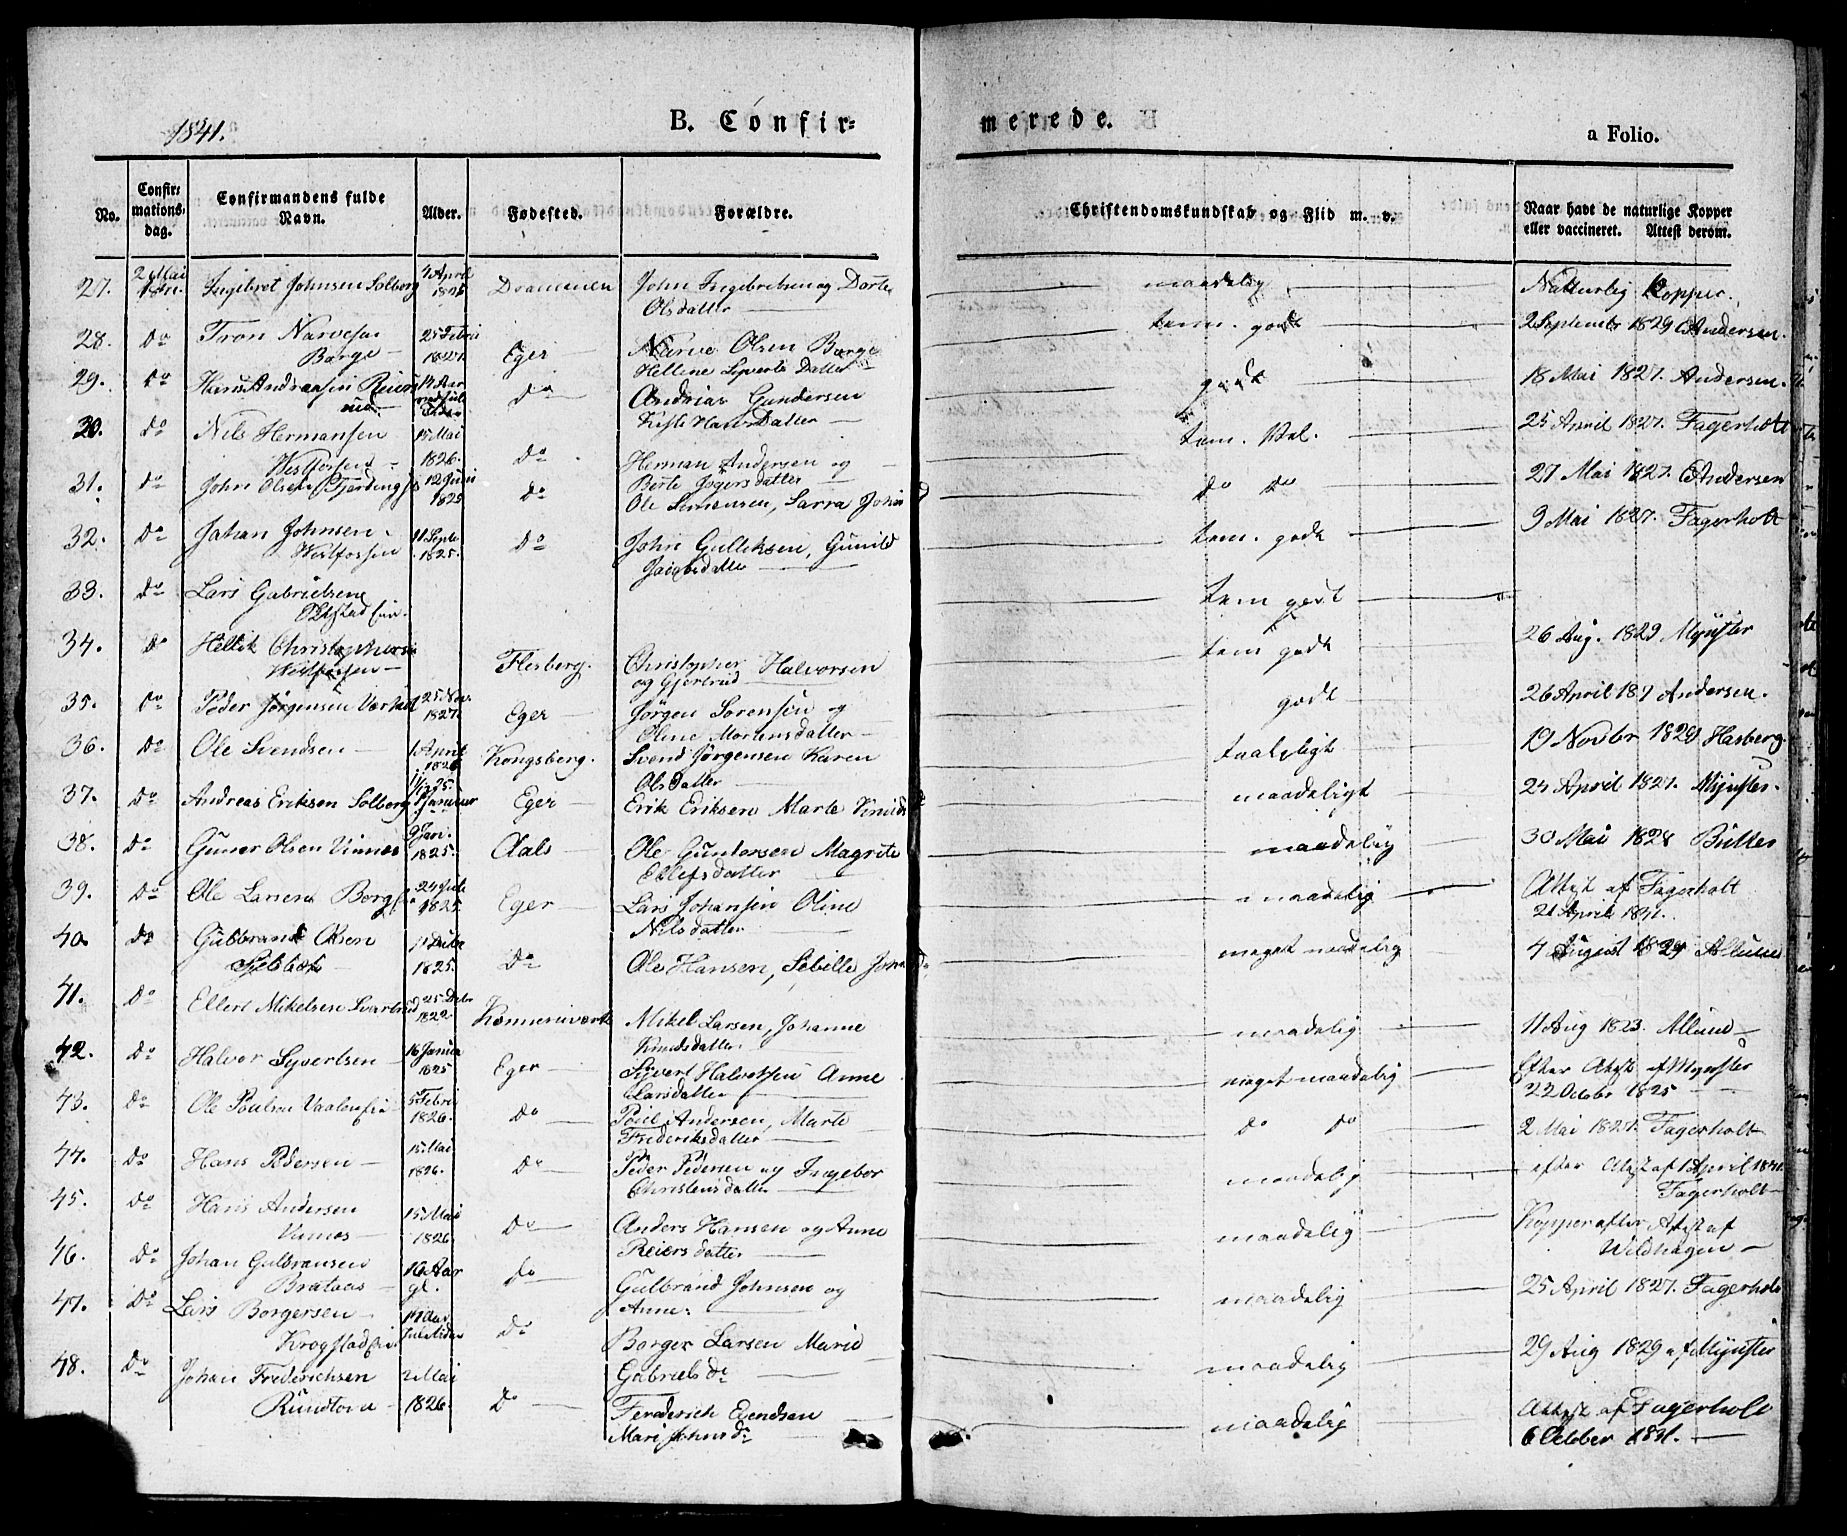 1841.
B. Confir=
merede.
a Folio.
No.
Confir=
mations=
dag.
Confirmandens fulde
Navn.
Alder.
Fødested.
Forældre.
Christendomskundskab og Flid m. v.
Naar havt de naturlige Kopper
eller vaccineret. Attest derom.
27. 2 Mai Ingebret Johnsen Solberg 4 April 1825 Drammen John Ingebretsen og Dorte
Olsdatter maadelig Natturlig Kopper.
28. Do Tron Narvesen
Borge 25 Febru 1827 Eger Narve Olsen Borge
Hellene Syverts Datter tem. godt 2 Septembr 1829 Andersen.
29. Do Hans Andreasen
Do Andreas Gundersen
Hans Datter godt 18 Mai 1827. Andersen.
30. Do Nils Hermansen
Westfossen 15 Mai 1826. Do Herman Andersen og
Berte tem. Vel. 25 April 1827. Fagerholt
31. Do John Olsen 12 Juni 1825 Do Ole Simensen, Sarra
Do Do 27 Mai 1827. Andersen
32. Do Johan Johnsen
Westfossen 11 Septe 1825. Do John Gulliksen, Gunild
tem. godt 9 Mai 1827. Fagerholt
33. Do Lars Gabrielsen
tem godt
34. Do Hellik Christophersen
Westfossen Flesberg. Christopher Halvorsen
og Gjertrud tem godt 26 Aug. 1829 Mynster
35. Do Peder Jørgensen 25 Nov. 1827. Eger Jørgen Sørensen og
Oline Mortensdatter godt 26 April 187 Andersen.
36. Do Ole Svendsen 1 April 1826 Kongsberg. Svend Jørgensen Karen
Olsdatter taaleligt 19 Novbr 1829 Hasberg
37. Do Andreas Eriksen Solberg Januar Eger Erik Eriksen Marte
maadeligt 24 April 1827. Mynster.
38. Do Guner Olsen Vinnes 9 Jan. 1825. Aals Ole Guntorsen Magrite
Ellefsdatter maadelig 30 Mai 1828
39. Do Ole Larsen 24 1825. Eger Lars Johansen Oline
Nilsdatter maadelig Attest af Fagerholt
21 April 1841.
40. Do Gulbrand Olsen
1825. Do Ole Hansen, Sebille
meget maadelig 4 August 1829
41. Do Ellert Mikelsen 25 1822. Mikel Larsen, Johanne
Knudsdatter maadelig 11 Aug 1823.
42. Do Halvor Syvertsen 16 Janua 1825 Eger Syvert Halvorsen Anne
Larsdatter meget maadelig Efter Attest af Mynster
22 Octobr 1825
43. Do Ole Poulsen 5 Febru 1826. Do Poul Andersen, Marte
Frederiksdatter Do Do 2 Mai 1827. Fagerholt
44. Do Hans Pedersen 15 Mai 1826. Do Peder Pedersen og Ingebor
Christensdatter maadelig efter Attest af 1 April 1841.
Fagerholt
45. Do Hans Andersen
Vinnes 15 Mai 1826 Do Anders Hansen og Anne
Reiersdatter maadelig Kopper efter Attest af
Wildhagen
46. Do Johan Gulbransen
Brataas 16 Aar gl. Do Gulbrand Johnsen og
Anne. maadelig 25 April 1827. Fagerholt
47. Do Lars Borgersen
Do Borger Larsen Marie
Gabriels Dr maadelig 29 Aug 1829 af Mynster
48. Do Johan Frederichsen
2 Mai 1826. Do Frederich Evendsen
Mari Johns Dr maadelig Attest af Fagerholt
6 October 1841.